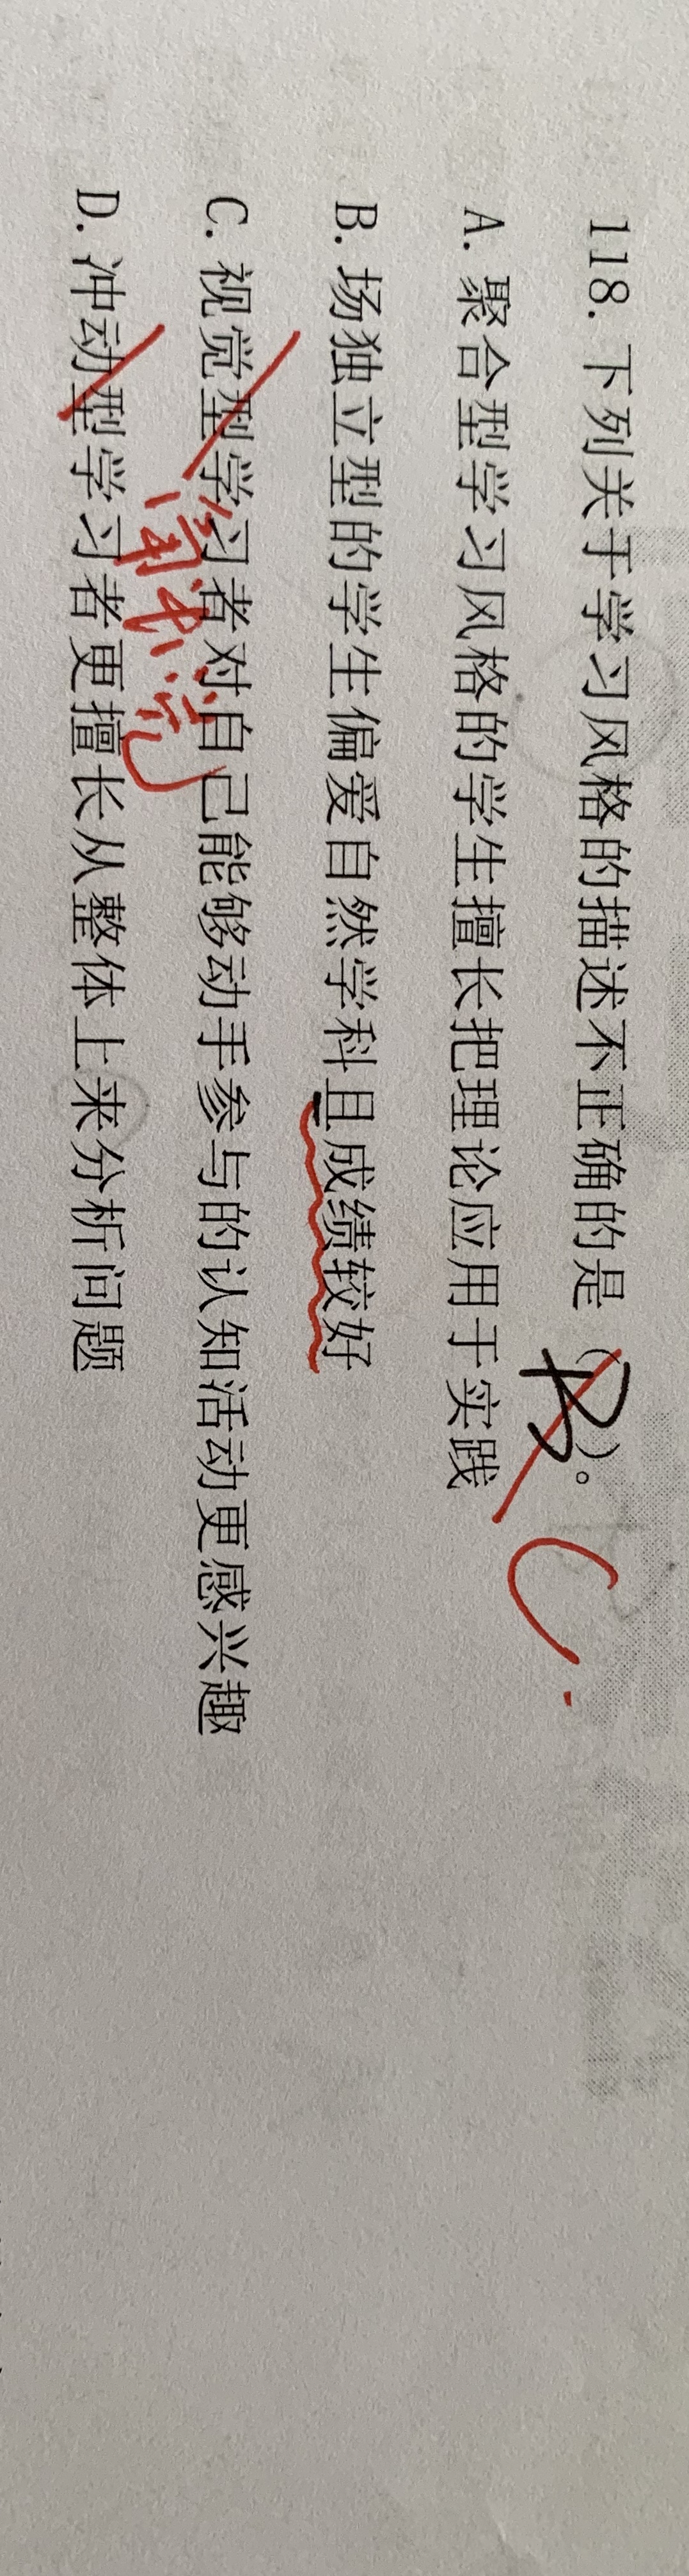 118. 下列关于学习风格的描述不正确的是（B）。 C.
A. 聚合型学习风格的学生擅长把理论应用于实践
B. 场独立型的学生偏爱自然学科且成绩较好
C. 视觉型学习者对自己能够动手参与的认知活动更感兴趣
D. 冲动型学习者更擅长从整体上来分析问题